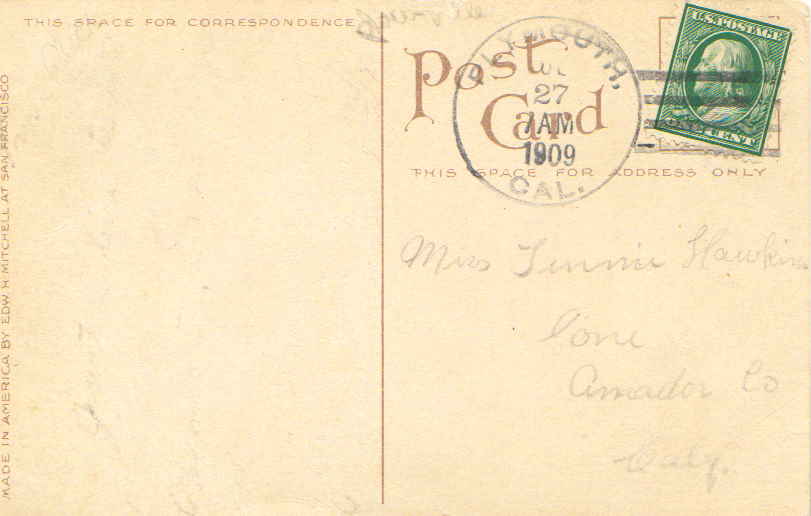 THIS SPACE FOR CORRESPONDENCE
MADE IN AMERICA BY EDW H MITCHELL AT SAN FRANCISCO
Post
Card
THIS SPACE FOR ADDRESS ONLY
PLYMOUTH,
27
7 AM
1909
CAL.
U.S. POSTAGE
ONE CENT
Miss Jennie Hawkins
Ione
Amador Co
Calif.